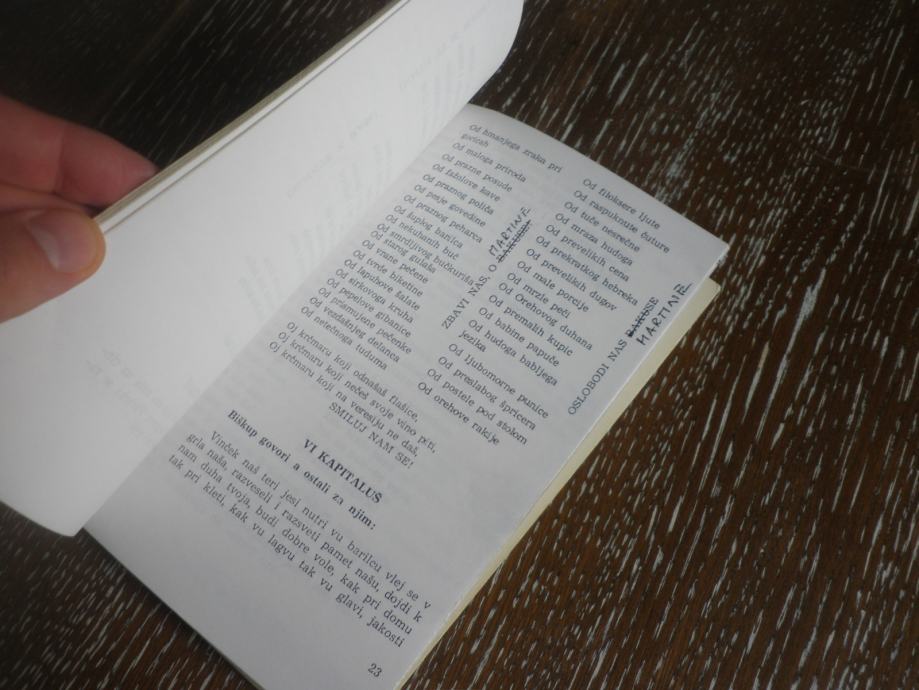 Od hmanjega zraka pri
goricah
Od maloga priroda
Od prazne posude
Od fažolove kave
Od praznog poliča
Od pesje govedine
Od praznog peharca
Od šuplog bariča
Od nekuhanih buč
Od smrdljivog bučkuriša
Od starog gulaša
Od vrane pečene
Od tvrde biketine
Od lapuhove šalate
Od sirkovoga kruha
Od pepelove gibanice
Od prismujene pečenke
Od vezdašnjeg delanca
Od netečnoga tuduma
ZBAVI NAS, O BAKUŠE!
MARTINE
Od filoksere ljute
Od raspuknute čuture
Od tuče nesrečne
Od mraza hudoga
Od prevelikih cena
Od prekratkog hebreka
Od prevelikih dugov
Od male porcije
Od mrzle peči
Od Orehovog duhana
Od premalih kupic
Od babine papuče
Od hudoga babljega
jezika
Od ljubomorne punice
Od preslabog špricera
Od postele pod stolom
Od orehove rakije
OSLOBODI NAS BAKUŠE
MARTINE
Oj krčmaru koji odnašaš flašice,
Oj krčmaru koji nečeš svoje vino piti,
Oj krčmaru koji na veresiju ne daš,
SMILUJ NAM SE!
VI KAPITALUŠ
Biškup govori a ostali za njim:
Vinček naš teri jesi nutri vu barilcu vlej se v
grla naša, razveseli i razsveti pamet našu, dojdi k
nam duha tvoja, budi dobre vole, kak pri domu
tak pri kleti, kak vu lagvu tak vu glavi, jakosti
23